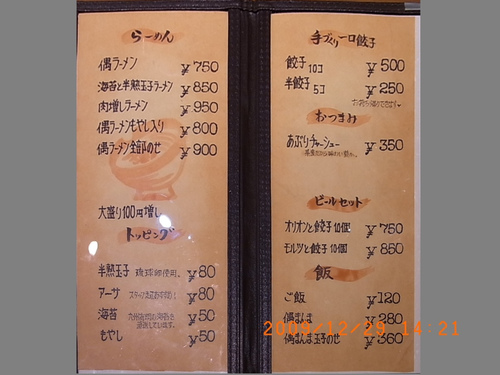 らーめん
偶ラーメン ¥750
海苔と半熟玉子ラーメン ¥850
肉増しラーメン ¥950
偶ラーメンもやし入り ¥800
偶ラーメン全部のせ ¥900
大盛り100円増し
トッピング
半熟玉子 琉球卵使用。 ¥80
アーサ ¥80
海苔 ¥50
もやし ¥50
手づくり一口餃子
餃子 10コ ¥500
半餃子 5コ ¥250
おつまみ
あぶりチャーシュー ¥350
ビールセット
オリオンと餃子10個 ¥750
モルツと餃子10個 ¥850
飯
ご飯 ¥120
偶まんま ¥280
偶まんま玉子のせ ¥360
2009/12/29 14:21